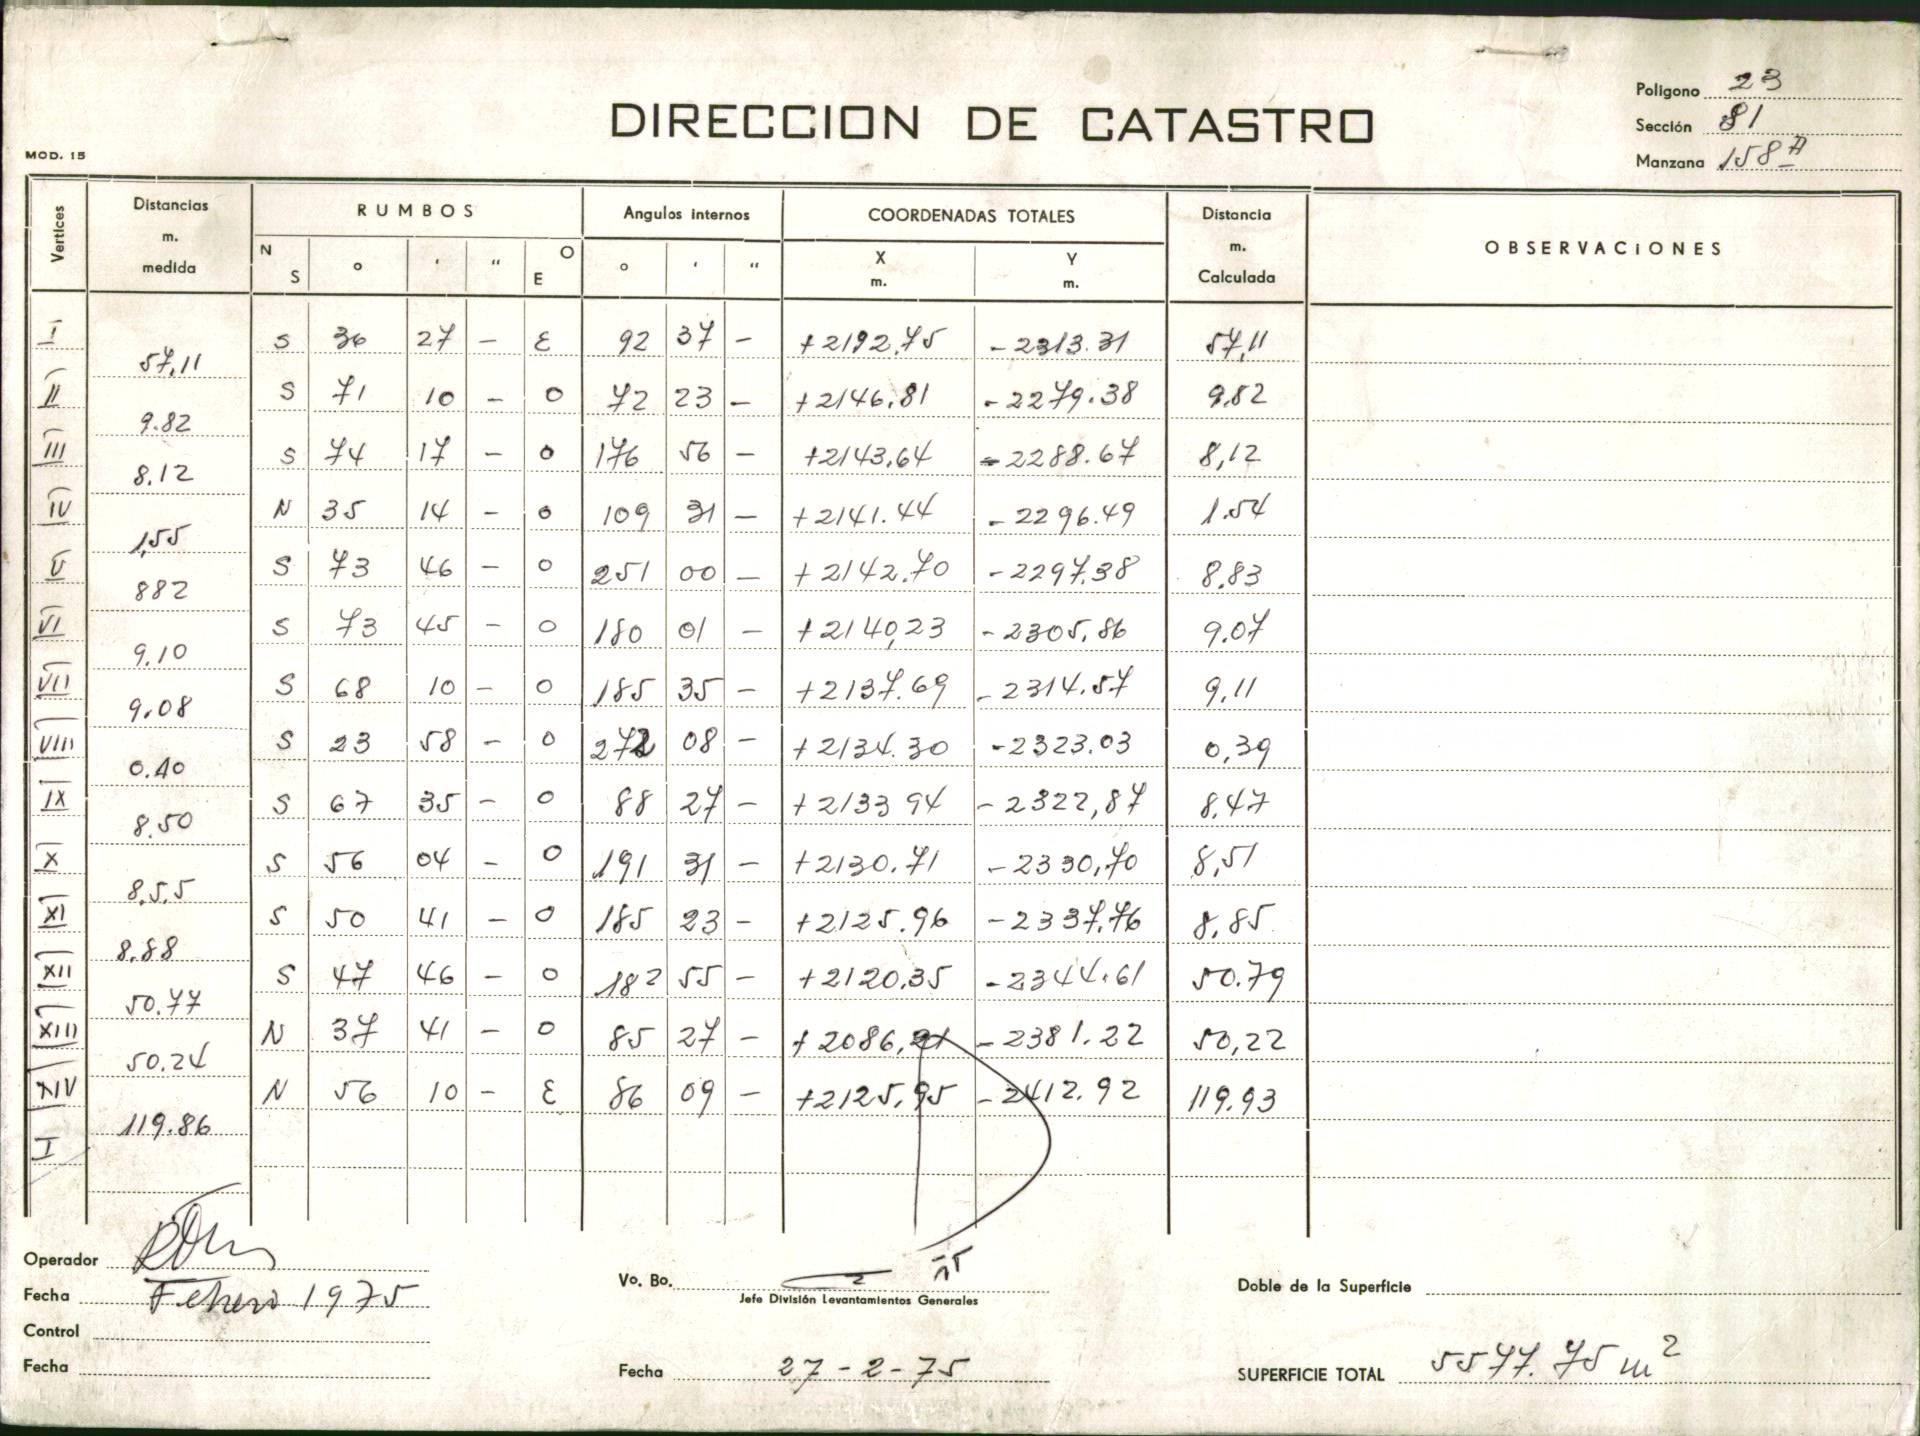 Poligono 23
DIRECCION DE CATASTRO
Sección 81
MOD. 15
Manzana 158 A
Vertices Distancias m. medida RUMBOS Angulos internos COORDENADAS TOTALES Distancia m. Calculada OBSERVACIONES
N S ° ' " O E ° ' " X m. Y m.
I S 36 27 - E 92 37 - +2192,75 -2313.31 57,11
57,11
II S 71 10 - O 72 23 - +2146,81 -2279.38 9,82
9.82
III S 74 17 - O 176 56 - +2143,64 -2288.67 8,12
8.12
IV N 35 14 - O 109 31 - +2141.44 -2296.49 1.54
1,55
V S 73 46 - O 251 00 - +2142,70 -2297,38 8.83
882
VI S 73 45 - O 180 01 - +2140,23 -2305,86 9.07
9.10
VII S 68 10 - O 185 35 - +2137.69 -2314.57 9,11
9.08
VIII S 23 58 - O 272 08 - +2134.30 -2323.03 0,39
0.40
IX S 67 35 - O 88 27 - +2133 94 -2322,87 8,47
8.50
X S 56 04 - O 191 31 - +2130.71 -2330,70 8,51
8.55
XI S 50 41 - O 185 23 - +2125.96 -2337,76 8,85
8,88
XII S 47 46 - O 182 55 - +2120,35 -2344.61 50.79
50.77
XIII N 37 41 - O 85 27 - +2086,21 -2381.22 50,22
50.24
XIV N 56 10 - E 86 09 - +2125,95 -2412.92 119.93
119.86
I
Operador
Fecha Febrero 1975
Vo. Bo.
Jefe División Levantamientos Generales
Doble de la Superficie
Control
Fecha
Fecha 27-2-75
SUPERFICIE TOTAL 5577.75 m²